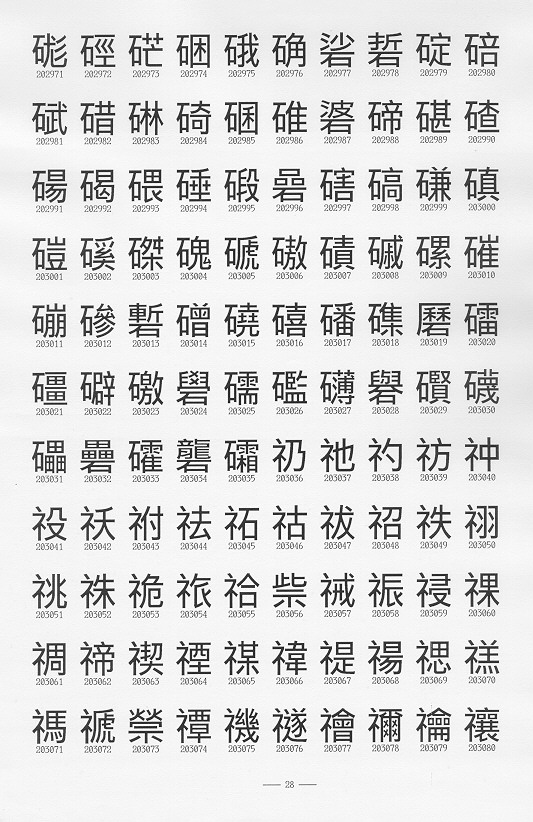 硥 硜 硭 硱 硪 确 硰 硩 碇 碚
202971 202972 202973 202974 202975 202976 202977 202978 202979 202980
碔 碏 碄 碕 碅 碓 碆 碲 碪 碴
202981 202982 202983 202984 202985 202986 202987 202988 202989 202990
碭 碣 碨 硾 碬 碞 磍 碻 磏 磌
202991 202992 202993 202994 202995 202996 202997 202998 202999 203000
磑 磎 磔 磈 磃 磝 磧 磩 磥 磪
203001 203002 203003 203004 203005 203006 203007 203008 203009 203010
磞 磣 磛 磳 磽 礂 磻 磼 磿 礌
203011 203012 203013 203014 203015 203016 203017 203018 203019 203020
礓 礔 礉 礐 礝 礛 礡 礜 礥 礒
203021 203022 203023 203024 203025 203026 203027 203028 203029 203030
礧 礨 礭 礱 礵 礽 祂 礿 祊 祌
203031 203032 203033 203034 203035 203036 203037 203038 203039 203040
祋 祅 祔 祛 祏 祜 祓 祒 祑 祤
203041 203042 203043 203044 203045 203046 203047 203048 203049 203050
祧 祩 祪 祣 祫 祡 祴 祳 祲 祼
203051 203052 203053 203054 203055 203056 203057 203058 203059 203060
禂 禘 禊 禋 禖 禕 禔 禓 禗 禚
203061 203062 203063 203064 203065 203066 203067 203068 203069 203070
禡 禠 禜 禫 禨 禭 禬 禰 禴 禳
203071 203072 203073 203074 203075 203076 203077 203078 203079 203080
— 28 —